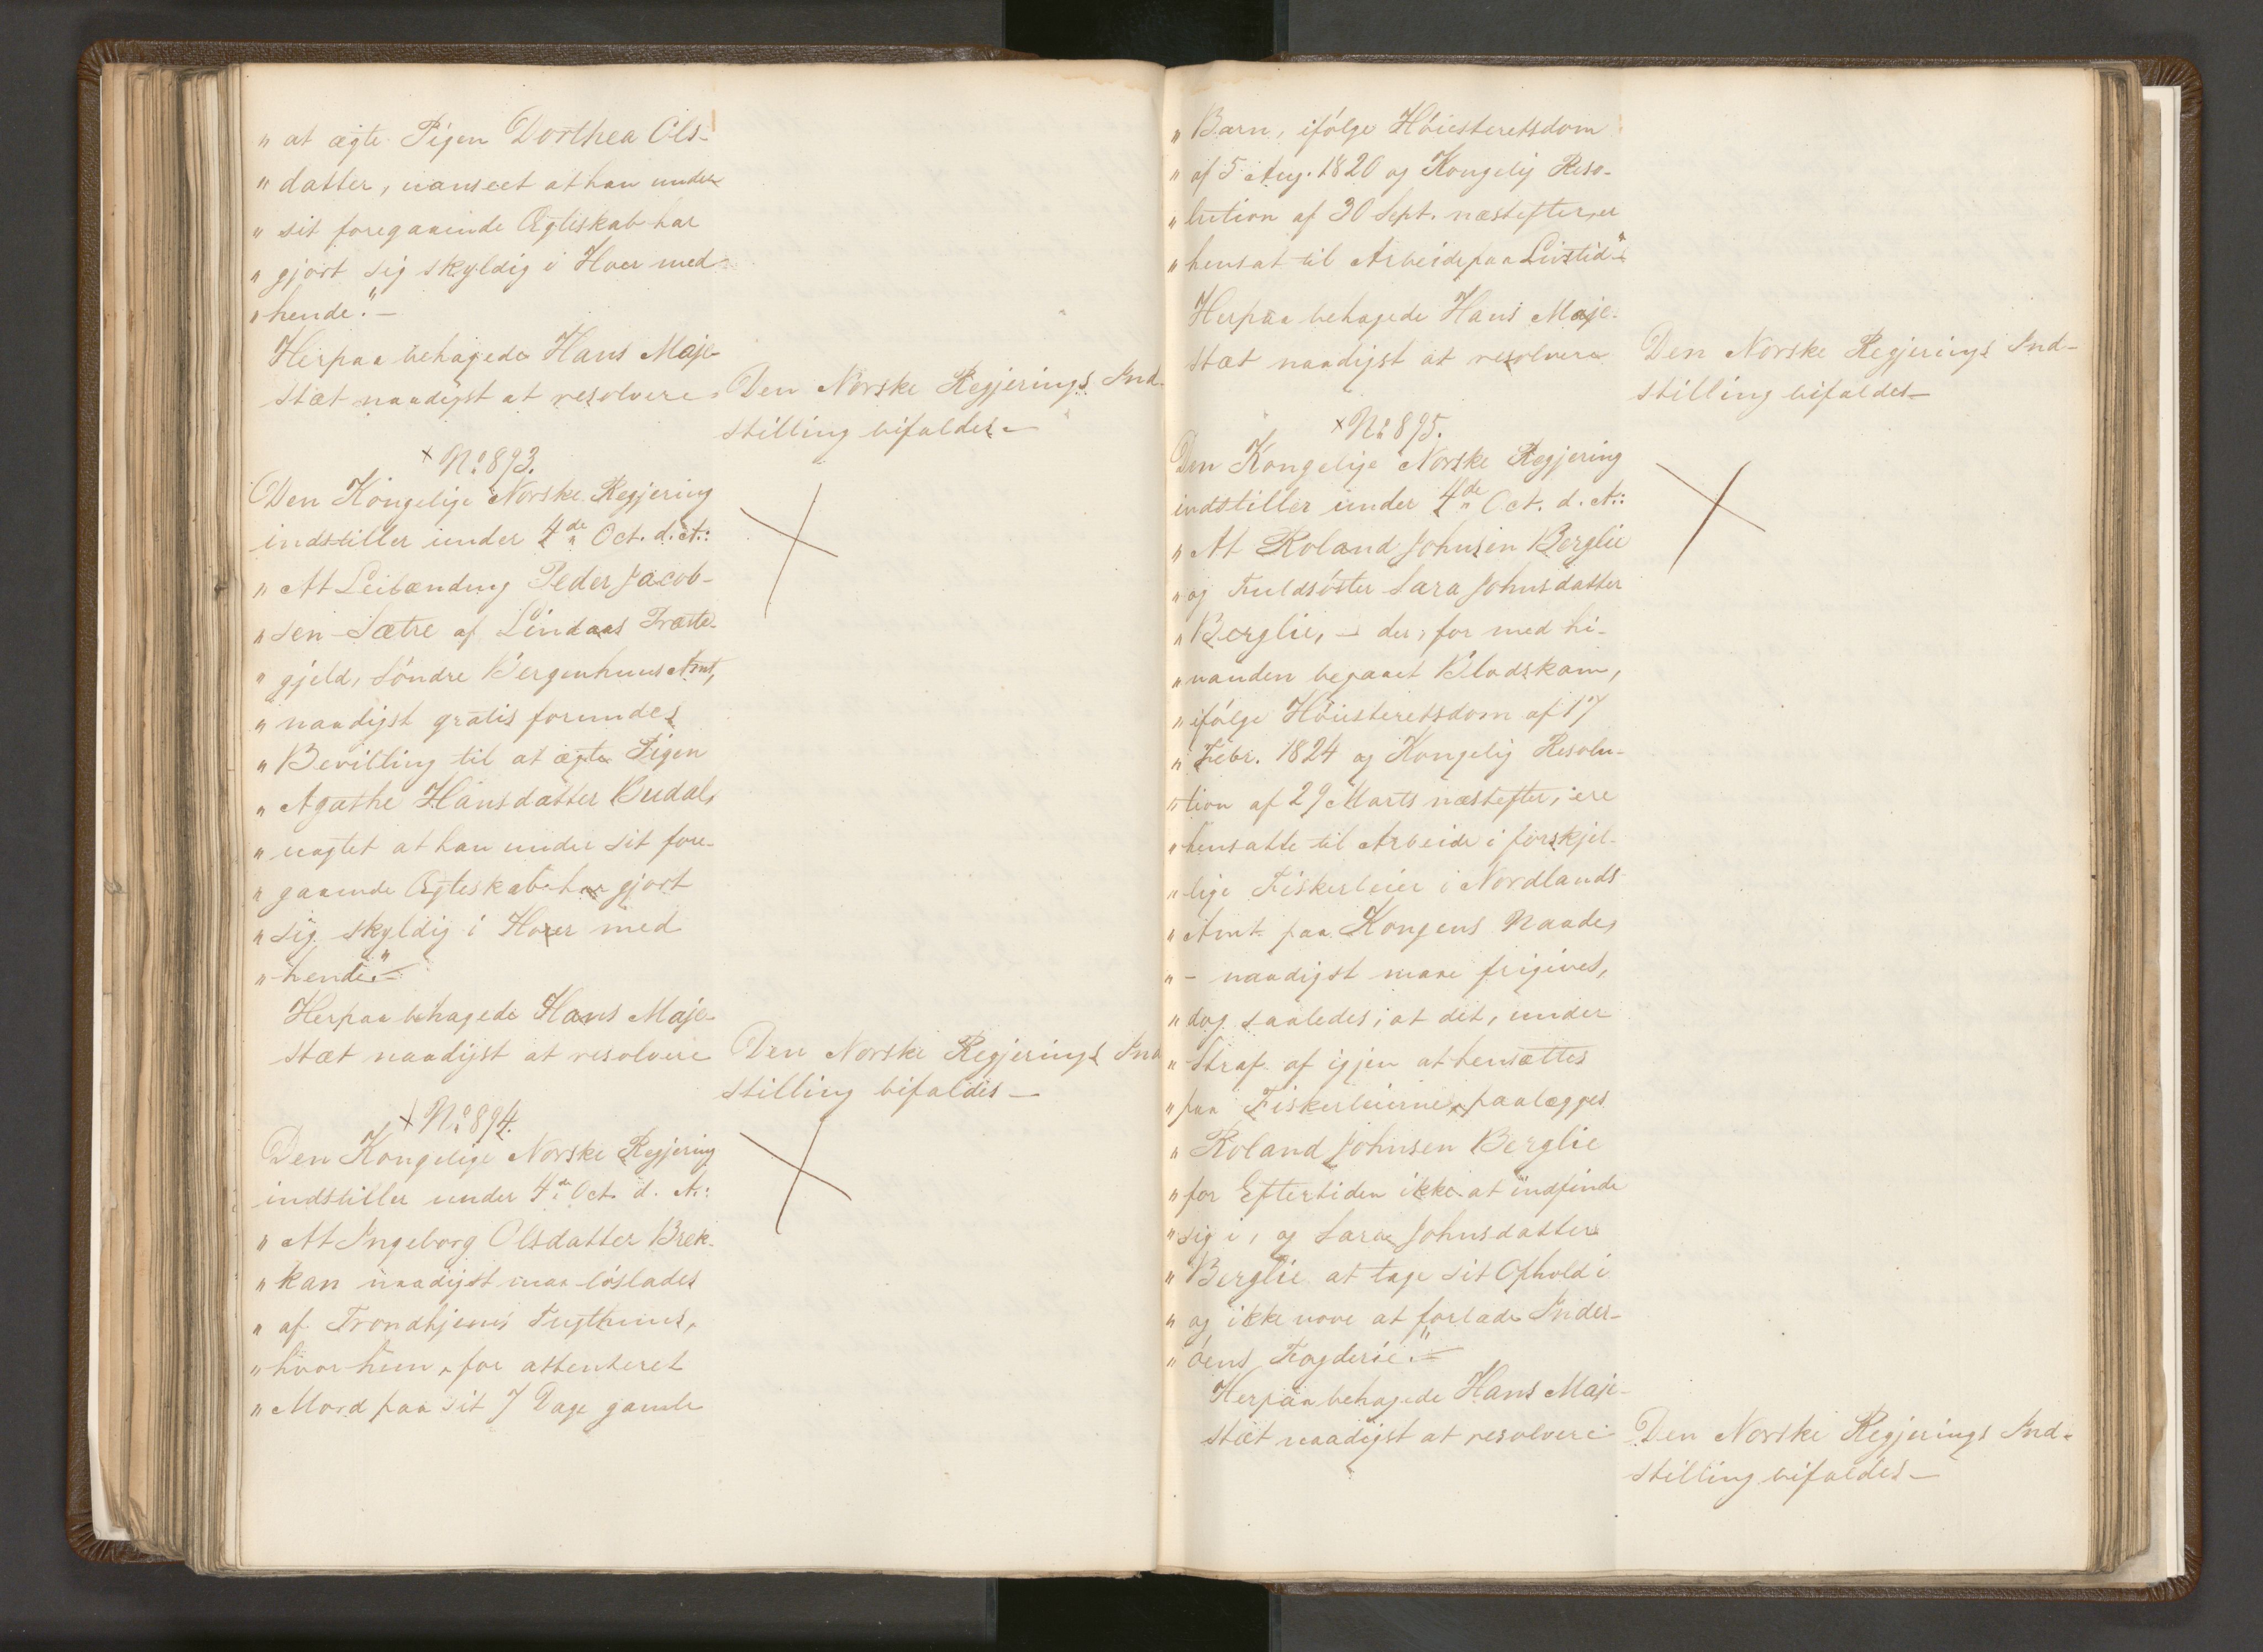 „ at ægte Pigen Dorthea Ols-
„ datter, uanseet at han under
„ sit foregaaende Ægteskab har
„ gjort sig skyldig i Hoer med
„ hende." —
Herpaa behagede Hans Maje-
stæt naadigst at resolvere
Den Norske Regjerings Ind-
stilling bifaldes —
× No 893.
Den Kongelige Norske Regjering
indstiller under 4de Oct. d. A.:
„ At Leilænding Peder Jacob-
„ sen Sætre af Lindaas Præste-
„ gjeld, Söndre Bergenhuus Amt,
„ naadigst gratis forundes
„ Bevilling til at ægte Pigen
„ Agathe Hansdatter Budal,
„ uagtet at han under sit fore-
„ gaaende Ægteskab har gjort
„ sig skyldig i Hoer med
„ hende." —
Herpaa behagede Hans Maje-
stæt naadigst at resolvere
Den Norske Regjerings Ind
stilling bifaldes —
× No 894.
Den Kongelige Norske Regjering
indstiller under 4de Oct. d. A.:
„ At Ingeborg Olsdatter Brek-
„ kan naadigst maa löslades
„ af Trondhjems Tugthuus,
„ hvor hun, for attenteret
„ Mord paa sit 7 Dage gamle
„ Barn, ifölge Höiesteretsdom
„ af 5 Aug. 1820 og Kongelig Reso-
„ lution af 30 Sept. næstefter, er
„ hensat til Arbeide paa Livstid" —
Herpaa behagede Hans Maje-
stæt naadigst at resolvere
Den Norske Regjerings Ind-
stilling bifaldes —
× No 895.
Den Kongelige Norske Regjering
indstiller under 4de Oct. d. A.:
„ At Roland Johnsen Berglie
„ og Fuldsöster Sara Johnsdatter
„ Berglie, — der, for med hi-
„ nanden begaaet Blodskam,
„ ifölge Höiesteretsdom af 17
„ Febr. 1824 og Kongelig Resolu-
„ tion af 29 Marts næstefter, ere
„ hensatte til Arbeide i forskjel-
„ lige Fiskerleier i Nordlands
„ Amt paa Kongens Naade,
„ — naadigst maae frigives,
„ dog saaledes, at det, under
„ Straf af igjen at hensættes
„ paa Fiskerleierne, paalægges
„ Roland Johnsen Berglie
„ for Eftertiden ikke at indfinde
„ sig i, og Sara Johnsdatter
„ Berglie at tage sit Ophold i
„ og ikke vove at forlade Inder-
„ öens Fogderie." —
Herpaa behagede Hans Maje-
stæt naadigst at resolvere
Den Norske Regjerings Ind-
stilling bifaldes —